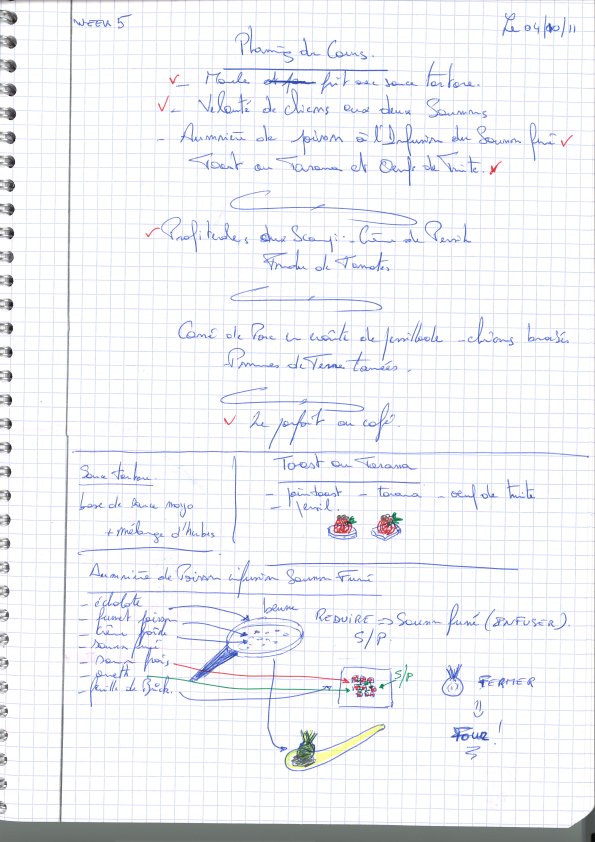 WEEK 5
Le 04/10/11
Planning du Cours.
- Moule frit avec sauce tartare.
- Velouté de chicons aux deux Saumons
- Aumônière de poisson à l'Infusion du Saumon fumé
Toast au Tarama et Oeufs de Truite.
Profiteroles aux Scampi - Crème de Persil
Fondu de Tomates
Carré de Porc en croûte de persillade - chicons braisés
- Pommes de Terre tournées.
Le parfait au café.
Sauce tartare.
base de sauce mayo
+ mélange d'herbes
Toast au Tarama
- pain toast - tarama - oeuf de truite
- persil.
Aumônière de Poisson infusion Saumon Fumé
- échalote
- fumet poisson
- crème froide
- saumon fumé
- saumon frais
- aneth
- feuille de Brick.
beurre
REDUIRE => Saumon fumé (INFUSER).
S/P.
S/P
FERMER
FOUR!